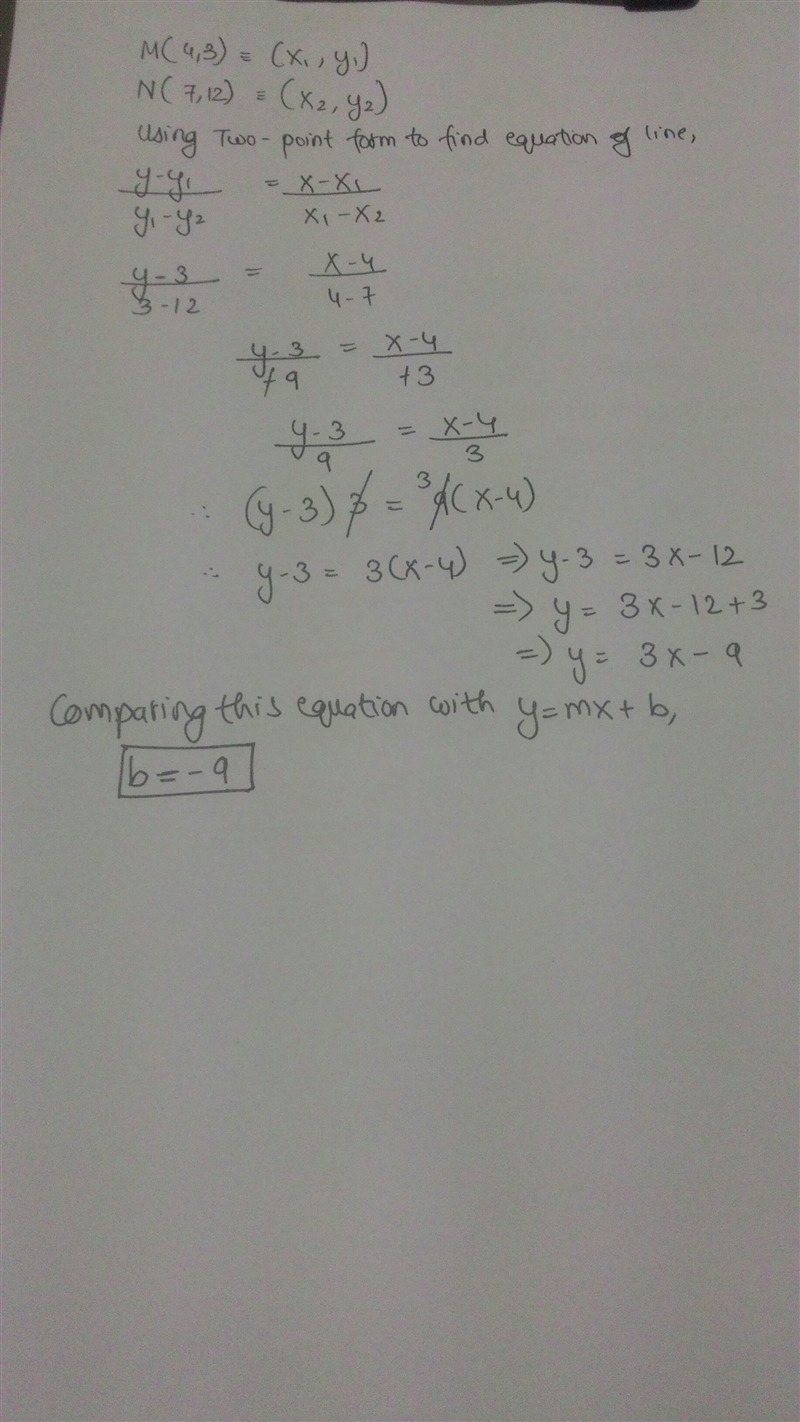 M(4,3) ≡ (x₁, y₁)
N(7,12) ≡ (x₂, y₂)
Using Two-point form to find equation of line,
(y-y₁)/(y₁-y₂) = (x-x₁)/(x₁-x₂)
(y-3)/(3-12) = (x-4)/(4-7)
(y-3)/(+9) = (x-4)/(+3)
(y-3)/9 = (x-4)/3
∴ (y-3) 3 = ³9(x-4)
∴ y-3 = 3(x-4) ⇒ y-3 = 3x-12
⇒ y = 3x-12+3
⇒ y = 3x-9
Comparing this equation with y=mx+b,
b=-9